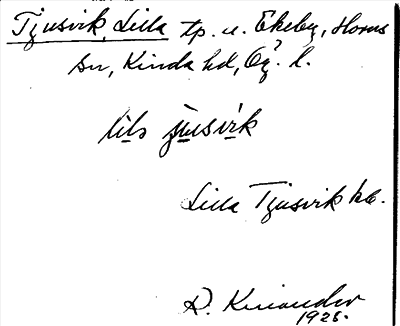 Tjusvik, Lilla tp. u. Ekeby, Horns
sn, Kinda hd, Ög. l.
lils jusvik
Lilla Tjusvik
R. Kinander
1928.